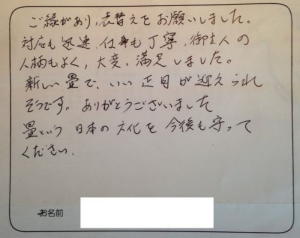 ご縁があり、表替えをお願いしました。
対応も迅速、仕事も丁寧、御主人の
人柄もよく、大変、満足しました。
新しい畳で、いい正月が迎えられ
そうです。ありがとうございました
畳という日本の文化を今後も守って
ください。
お名前